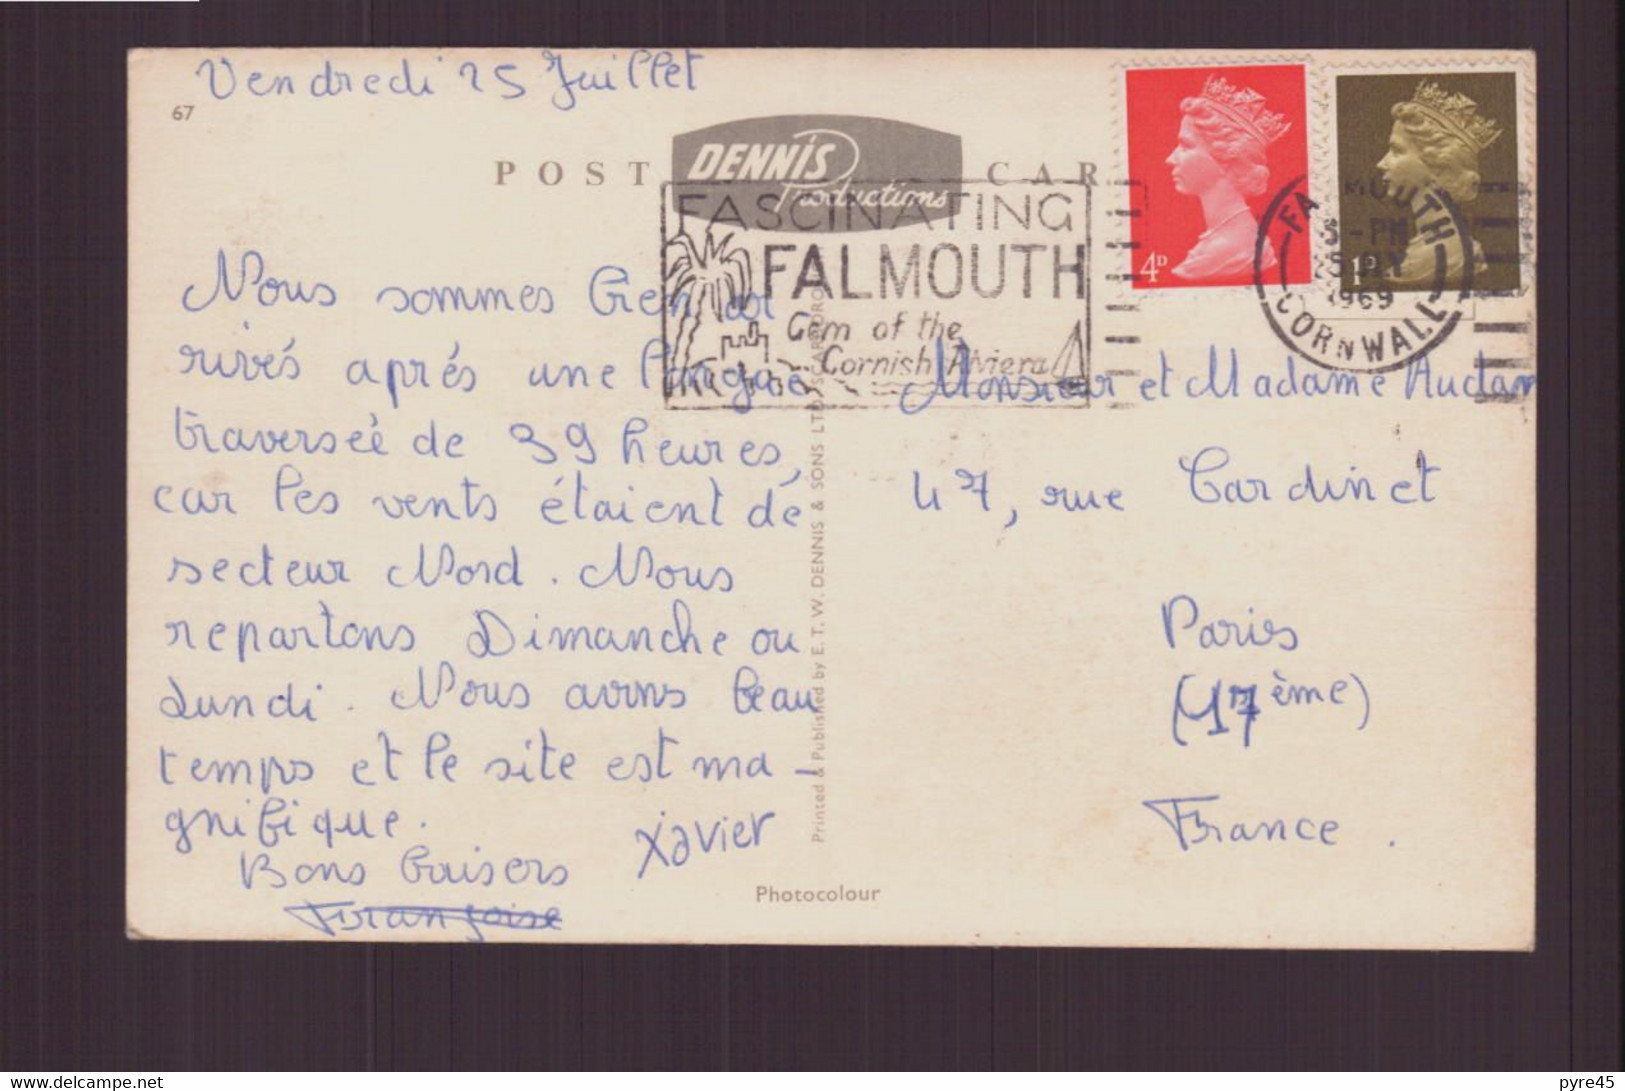 Vendredi 25 Juillet
67
POST CARD
DENNIS
Productions
FASCINATING
FALMOUTH
Gem of the
Cornish Riviera
4D
1D
FALMOUTH
5 - PM
25 JLY
1969
CORNWALL
Nous sommes bien ar
rivés après une longue
traversée de 39 heures,
car les vents étaient de
secteur Nord. Nous
repartons Dimanche ou
Lundi. Nous avons beau
temps et le site est ma-
gnifique.
Bons baisers
Xavier
Françoise
Printed & Published by E. T. W. DENNIS & SONS LTD., SCARBORO
Photocolour
Monsieur et Madame
47, rue Cardinet
Paris
(17ème)
France.
pyre45